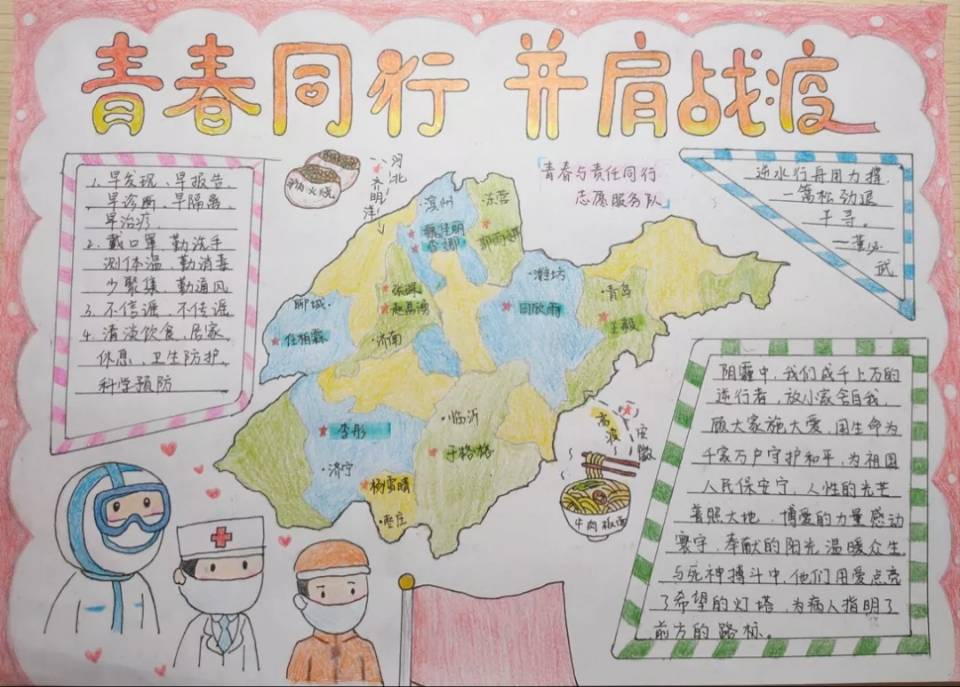 青春同行 并肩战疫
1. 早发现、早报告、
早诊断、早隔离、
早治疗.
2. 戴口罩、勤洗手
测体温、勤消毒
少聚集、勤通风
3. 不信谣、不传谣
4. 清淡饮食、居家
休息、卫生防护、
科学预防
火烧
河北
齐明洋
青春与责任同行
志愿服务队
逆水行舟用力撑
一篙松劲退
千寻。
—董必
武
·滨州
·东营
·潍坊
青岛
王毅
田欣雨
聊城·
任柏霖
·济南
李彤
·济宁
·临沂
于格格
杨雪晴
枣庄
安徽
牛肉板面
阴霾中,我们成千上万的
逆行者,放小家舍自我,
顾大家施大爱,用生命为
千家万户守护和平,为祖国
人民保安宁,人性的光芒
普照大地,博爱的力量感动
寰宇,奉献的阳光温暖众生
与死神搏斗中,他们用爱点亮
了希望的灯塔,为病人指明了
前方的路标。